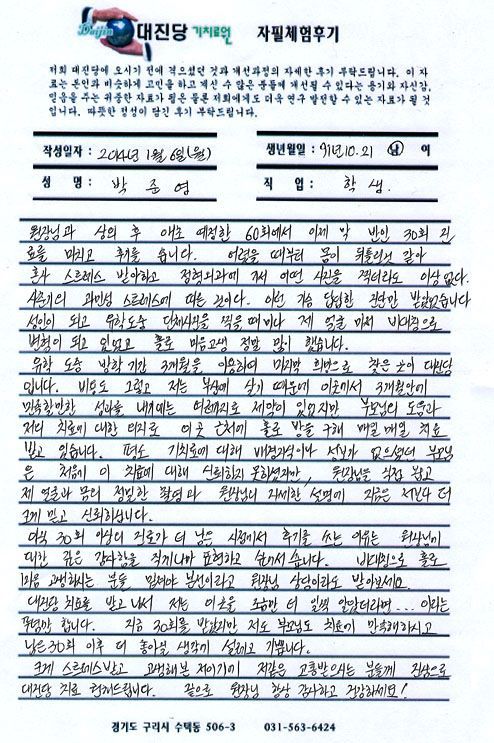 Daijin 대진당 기치료원 자필체험후기
저희 대진당에 오시기 전에 격으셨던 것과 개선과정의 자세한 후기 부탁드립니다. 이 자
료는 본인과 비슷하게 고민을 하고 계신 수 많은 분들에게 개선될 수 있다는 용기와 자신감,
믿음을 주는 귀중한 자료가 됨은 물론 저희에게도 더욱 연구 발전할 수 있는 자료가 될 것
입니다. 따뜻한 정성이 담긴 후기 부탁드립니다.
작성일자 : 2014년 1월 6일(월) 생년월일 : 91년.10.21 남 여
성 명 : 박준영 직 업 : 학생.
원장님과 상의 후 애초 예정한 60회에서 이제 막 반인 30회 진
료를 마치고 후기를 씁니다. 어렸을 때부터 몸이 뒤틀린것 같아
혼자 스트레스 받아하고 정형외과에 가서 어떤 사진을 찍더라도 이상 없다.
사춘기의 과민성 스트레스에 따른 것이다. 이런 가슴 답답한 진단만 받았었습니다
성인이 되고 유학도중 단체사진을 찍을 때마다 제 얼굴 마저 비대칭으로
변형이 되고 있었고 홀로 마음고생 정말 많이 했습니다.
유학 도중 방학 기간 3개월을 이용하여 마지막 희망으로 찾은 곳이 대진당
입니다. 비용도 그렇고 저는 부산에 살기 때문에 이곳에서 3개월안에
만족할만한 성과를 내기에는 여러가지로 제약이 있었지만 부모님의 도움과
저의 치료에 대한 의지로 이 곳 근처에 홀로 방을 구해 매일매일 치료
받고 있습니다. 평소 기치료에 대해 배경지식이나 정보가 없으셨던 부모님
은 처음에 이 치료에 대해 신뢰하지 못하셨지만, 원장님을 직접 뵙고
제 얼굴과 몸의 정밀한 촬영과 원장님의 자세한 설명에 지금은 저보다 더
크게 믿고 신뢰하십니다.
아직 30회 이상의 치료가 더 남은 시점에서 후기를 쓰는 이유는 원장님에
대한 깊은 감사함을 적게나마 표현하고 싶어서 입니다. 비대칭으로 홀로
마음 고생하시는 분들 원장님 상담이라도 받아보세요.
대진당 치료를 받고 나서 저는 이곳을 조금만 더 일찍 알았더라면... 이라는
생각만 합니다. 지금 30회를 받았지만 저도 부모님도 치료에 만족해하시고
남은 30회 이후 더 좋아질 생각에 설레고 기쁩니다.
크게 스트레스받고 고생해본 저이기에 저같은 고통받으시는 분들께 진심으로
대진당 치료 권해드립니다. 끝으로 원장님 항상 감사하고 건강하세요!
경기도 구리시 수택동 506-3 031-563-6424